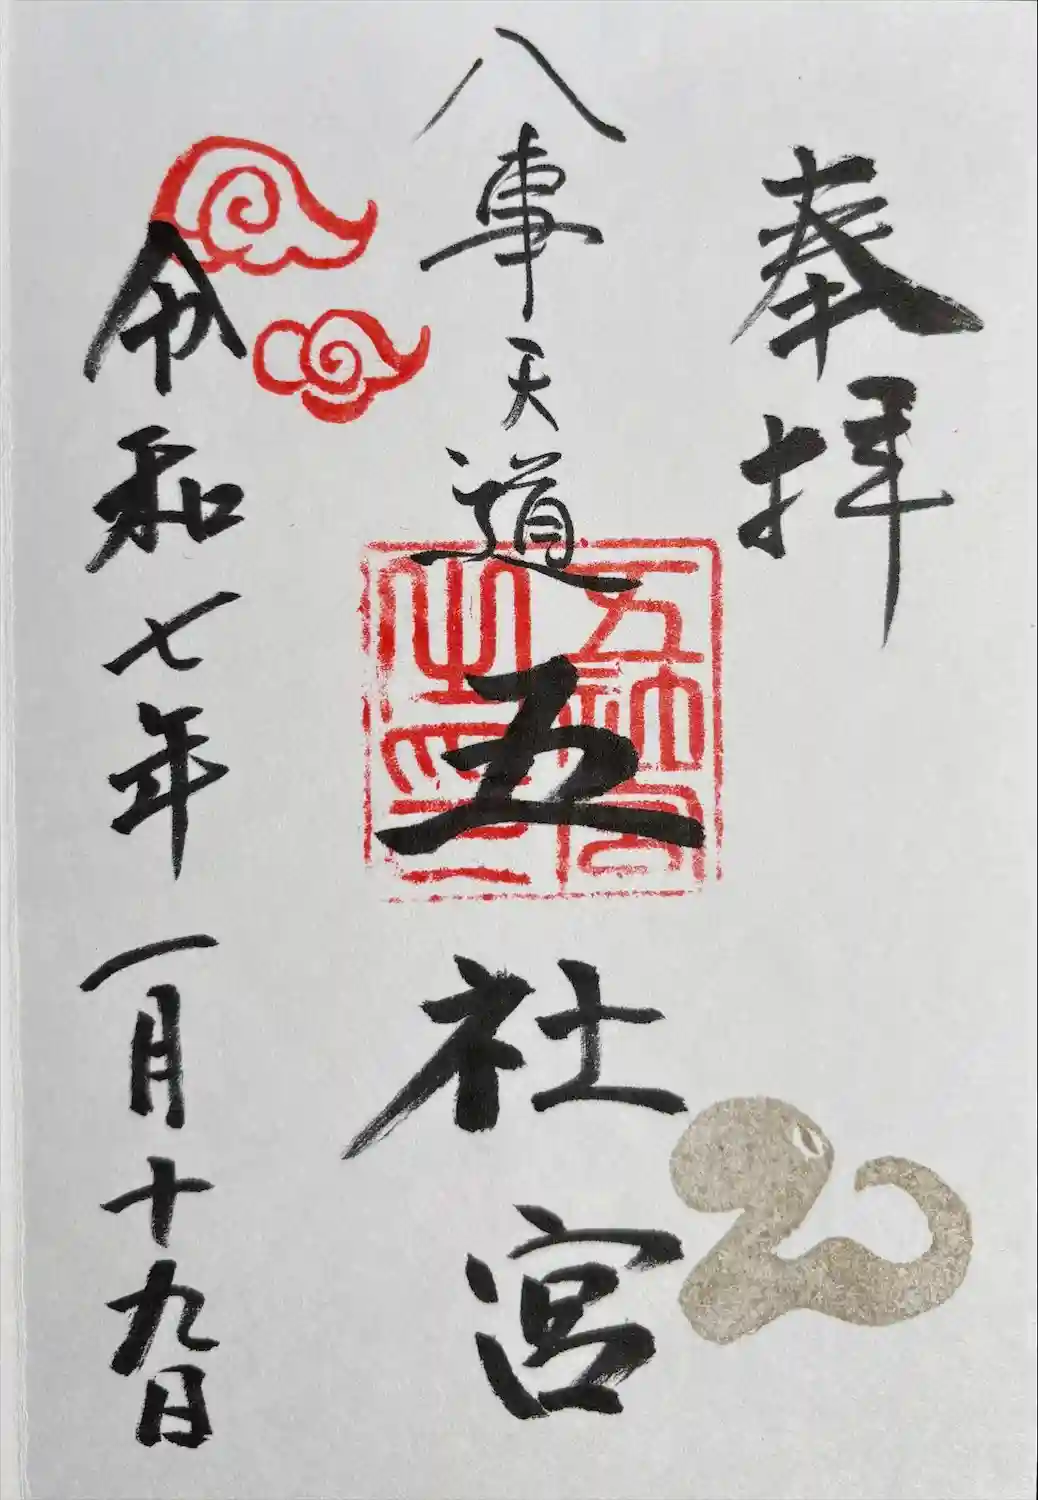 奉拝
八事天道
五社宮
五社宮之印
令和七年一月十九日